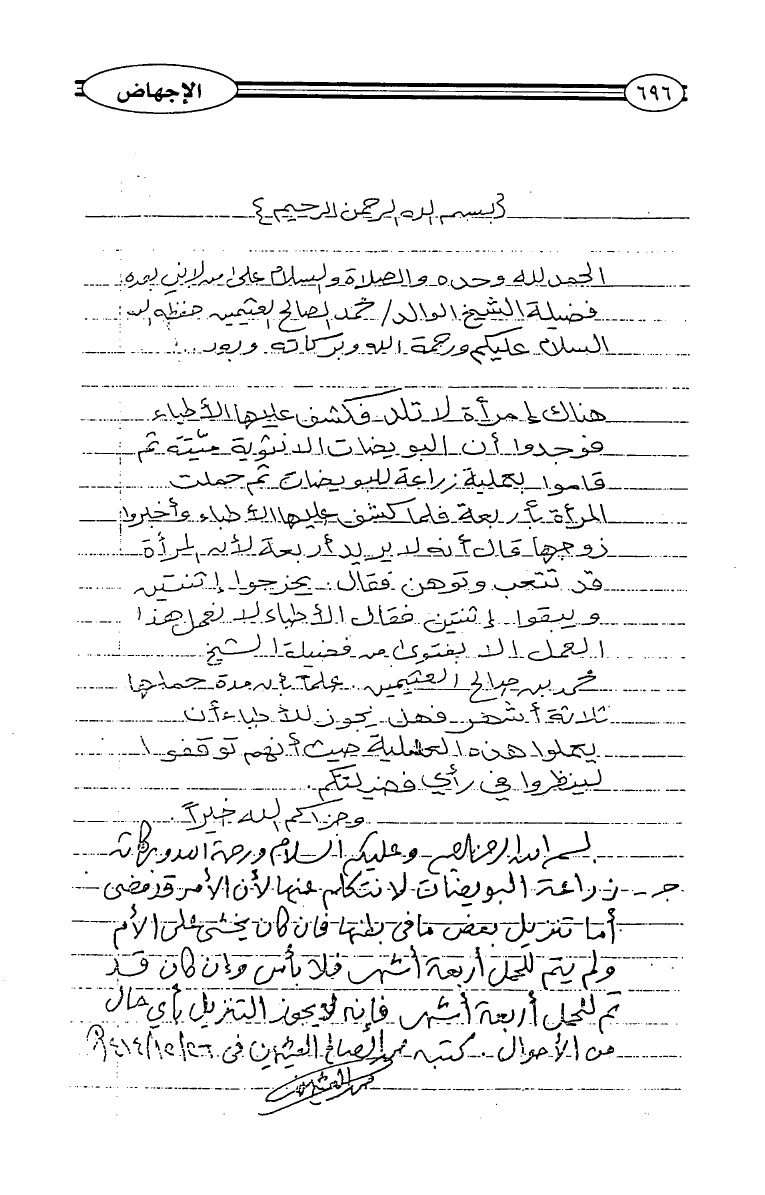 ٦٩٦
الإجهاض
{بسم الله الرحمن الرحيم}
الحمد لله وحده والصلاة والسلام على من لا نبي بعده
فضيلة الشيخ الوالد/ محمد الصالح العثيمين حفظه الله
السلام عليكم ورحمة الله وبركاته وبعد ..:
هناك إمرأة لا تلد فكشف عليها الأطباء
فوجدوا أن البويضات الانثوية ميّتة ثم
قاموا بعملية زراعة للبويضات ثم حملت
المرأة بأربعة فلما كشف عليها الأطباء وأخبروا
زوجها قال أنه لا يريد أربعة لأن المرأة
قد تتعب وتوهن فقال: يخرجوا إثنتين
ويبقوا إثنتين فقال الأطباء لا نعمل هذا
العمل الا بفتوى من فضيلة الشيخ
محمد بن صالح العثيمين. علماً بأن مدة حملها
ثلاثة أشهر فهل يجوز للأطباء أن
يعملوا هذه العملية حيث أنهم توقفوا
لينظروا في رأي فضيلتكم.
وجزاكم الله خيراً.
بسم الله الرحمن الرحيم وعليكم السلام ورحمة الله وبركاته
جـ - زراعة البويضات لا نتكلم عنها لأن الأمر قد مضى
أما تنزيل بعض ما في بطنها فإن كان يخشى على الأم
ولم يتم للحمل أربعة أشهر فلا بأس وإن كان قد
تم للحمل أربعة أشهر فإنه لا يجوز التنزيل بأي حال
من الأحوال. كتبه محمد الصالح العثيمين في ٢٦/١٢/١٤١٤هـ
محمد العثيمين